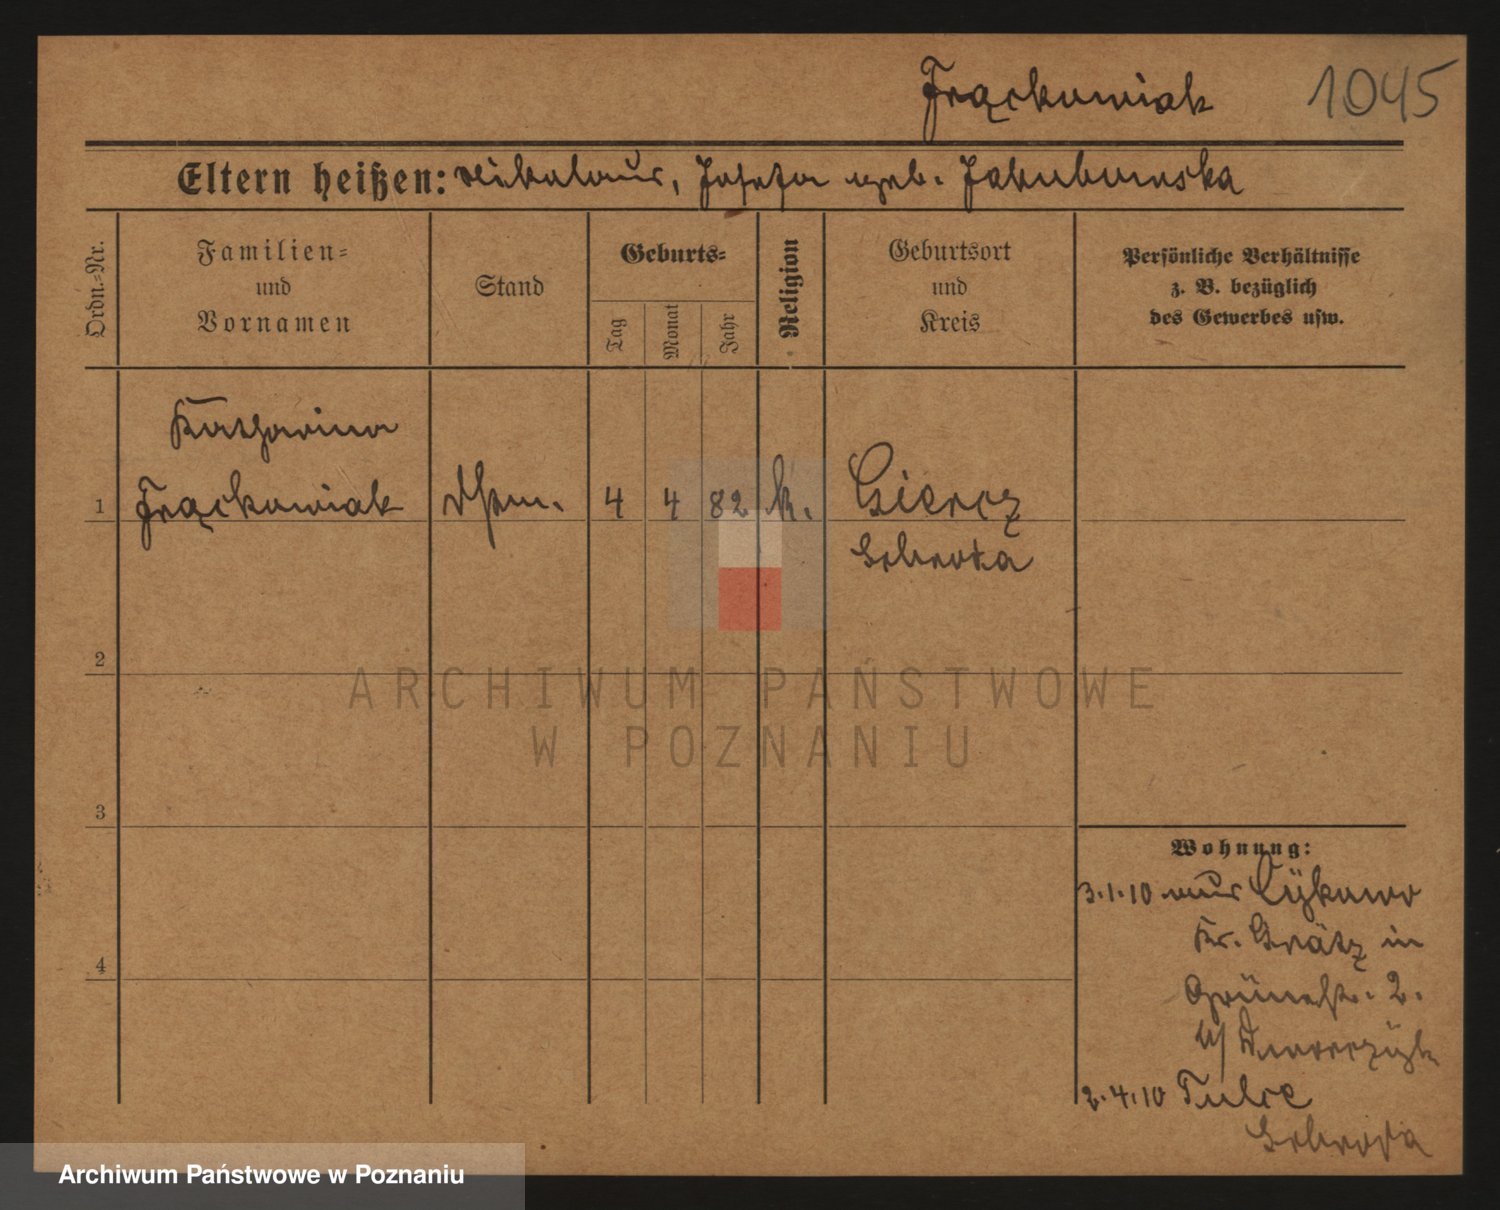 Frąckowiak 1045
Eltern heißen: Nikolaus, Josefa geb. Jakubowska
Ordn.-Nr.
Familien-
und
Vornamen
Stand
Geburts-
Tag
Monat
Jahr
Religion
Geburtsort
und
Kreis
Persönliche Verhältnisse
z. B. bezüglich
des Gewerbes usw.
Katharina
1 Frąckowiak 4 4 82 k. Giercz
Schroda
2
ARCHIWUM PAŃSTWOWE
W POZNANIU
3
Wohnung:
3.1.10 aus
Kr. Grätz in
Grünestr. 2.
4
b/
2.4.10 Tulce
Schroda
Archiwum Państwowe w Poznaniu